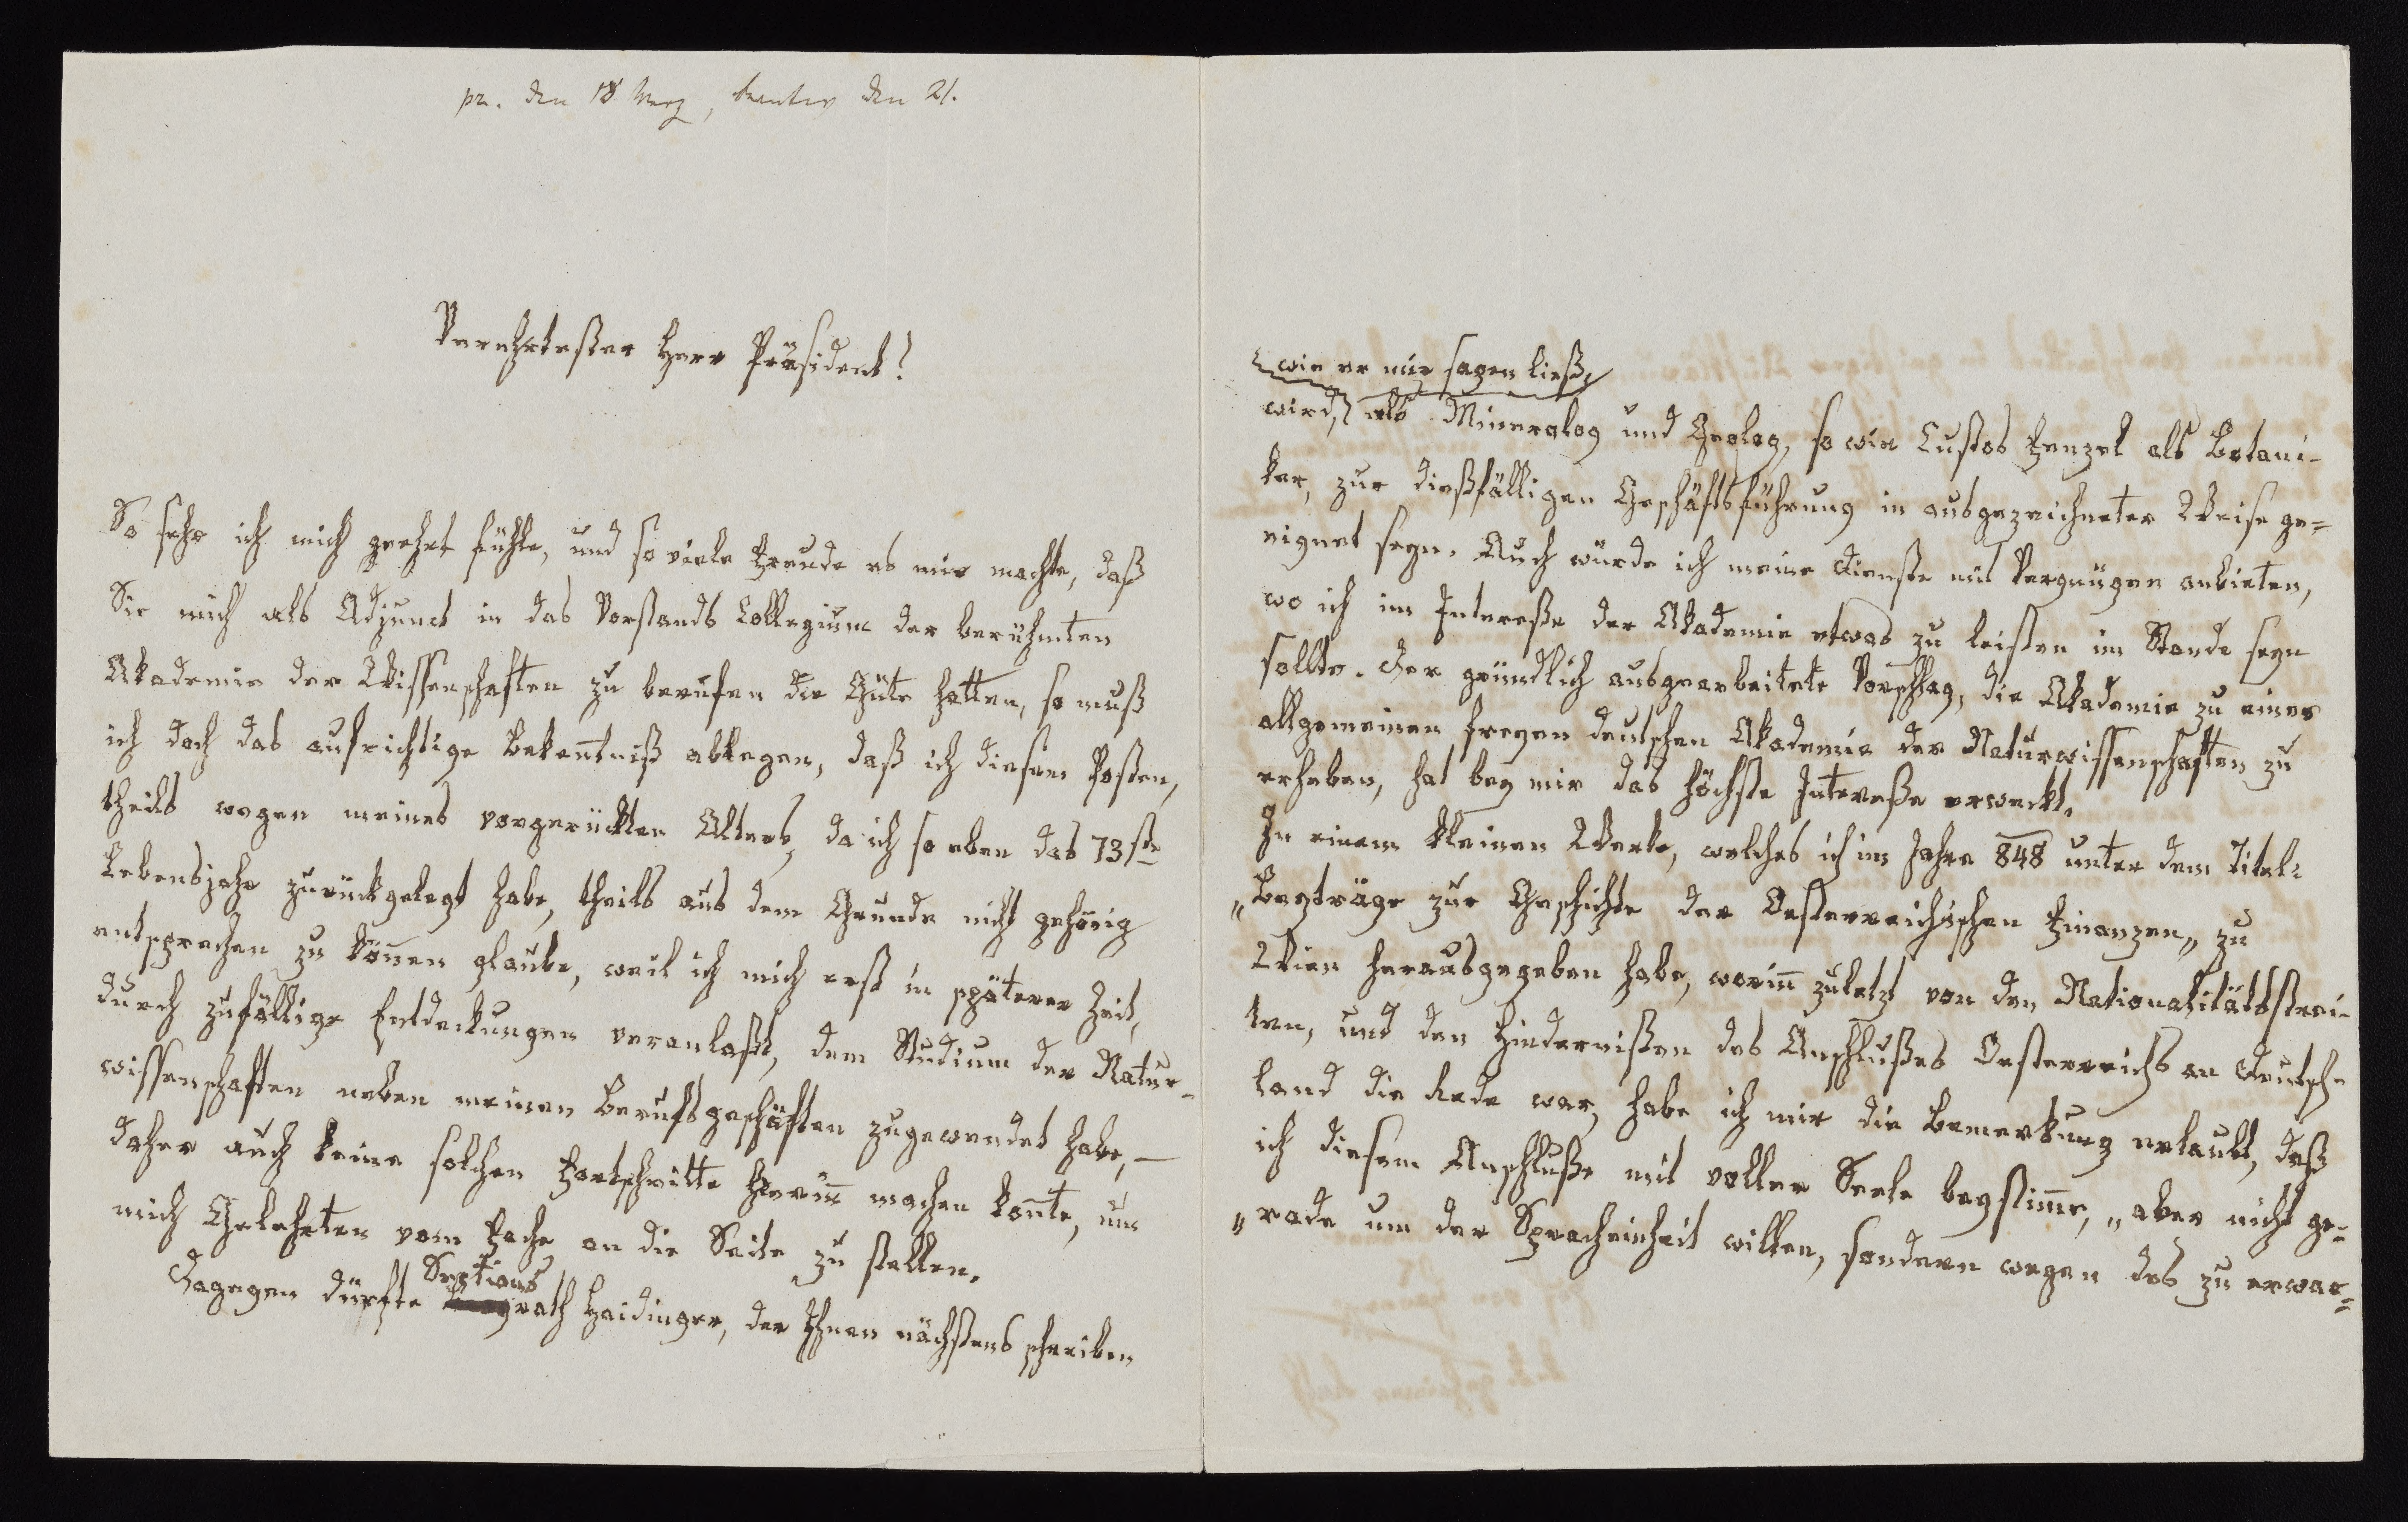 pr. den 18 Merz, beantw den 21.
Verehrtester Herr Präsident!
So sehr ich mich geehrt fühle, und so viele Freude es mir machte, daß
Sie mich als Adjunct in das Vorstands Collegium der berühmten
Akademie der Wissenschaften zu berufen die Güte hatten, so muß
ich doch das aufrichtige Bekentniß ablegen, daß ich diesem Posten,
theils wegen meines vorgerückten Alters, da ich so eben das 73ste
Lebensjahr zurückgelegt habe, theils aus dem Grunde nicht gehörig
entsprechen zu könen glaube, weil ich mich erst in späterer Zeit,
durch zufällige Entdeckungen veranlaßt, dem Studium der Natur-
wissenschaften neben meinen Berufsgeschäften zugewendet habe, –
daher auch keine solchen Fortschritte hierin machen konte, um
mich Gelehrten vom Fache an die Seite zu stellen.
Dagegen dürfte Sections rath Haidinger, der Ihnen nächstens schreiben
wie er mir sagen ließ,
wird, als Mineralog und Geolog, so wie Custos Fenzel als Botani-
ker, zur dießfälligen Geschäftsführung in ausgezeichneter Weise ge=
eignet seyn. Auch würde ich meine Dienste mit Vergnügen anbieten,
wo ich im Intereße der Akademie etwas zu leisten im Stande seyn
sollte. Der gründlich ausgearbeitete Vorschlag, die Akademie zu einer
allgemeinen freyen deutschen Akademie der Naturwissenschaften zu
erheben, hat bey mir das höchste Intereße erweckt.
In einem kleinen Werke, welches ich im Jahre 848 unter dem Titel:
„Beyträge zur Geschichte der Oesterreichischen Finanzen„ zu
Wien herausgegeben habe, worin zuletzt von den Nationalitätsstrei-
ten, und den Hindernißen des Anschlußes Oesterreichs an Deutsch-
land die Rede war, habe ich mir die Bemerkung erlaubt, daß
ich diesem Anschluße mit voller Seele beystime, „aber nicht ge-
„rade um der Spracheinheit willen, sondern wegen des zu erwar=